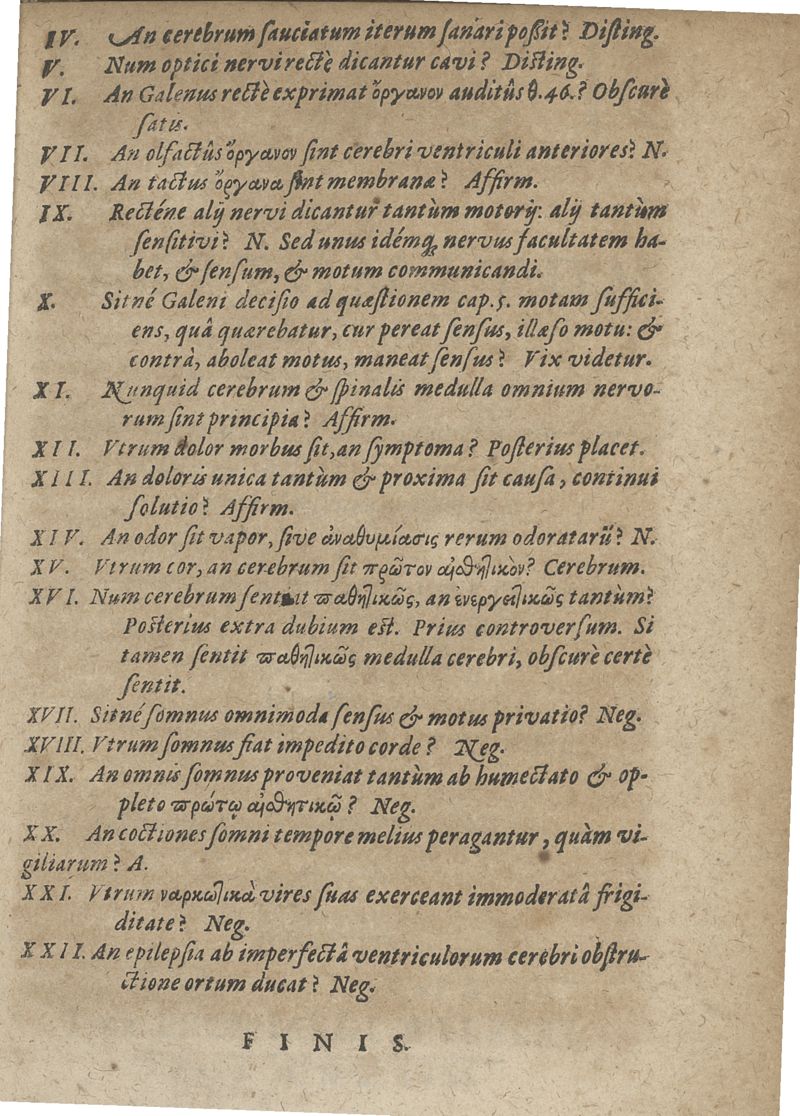 IV. An cerebrum sauciatum iterum sanari poßit? Disting.
V. Num optici nervi rectè dicantur cavi? Disting.
VI. An Galenus rectè exprimat ὄργανον auditûs θ. 46.? Obscurè
satis.
VII. An olfactûs ὄργανον sint cerebri ventriculi anteriores? N.
VIII. An tactus ὄργανα sint membranæ? Affirm.
IX. Recténe alij nervi dicantur tantùm motorij: alij tantùm
sensitivi? N. Sed unus idémq; nervus facultatem ha-
bet, & sensum, & motum communicandi.
X. Sitné Galeni decisio ad quæstionem cap. 5. motam suffici-
ens, quâ quærebatur, cur pereat sensus, illæso motu: &
contrà, aboleat motus, maneat sensus? Vix videtur.
XI. Nunquid cerebrum & spinalis medulla omnium nervo-
rum sint principia? Affirm.
XII. Vtrum dolor morbus sit, an symptoma? Posterius placet.
XIII. An doloris unica tantùm & proxima sit causa, continui
solutio? Affirm.
XIV. An odor sit vapor, sive ἀναθυμίασις rerum odoratarū? N.
XV. Vtrum cor, an cerebrum sit πρῶτον αἰσθητικὸν? Cerebrum.
XVI. Num cerebrum sentiat παθητικῶς, an ἐνεργετικῶς tantùm?
Posterius extra dubium est. Prius controversum. Si
tamen sentit παθητικῶς medulla cerebri, obscurè certè
sentit.
XVII. Sitné somnus omnimoda sensus & motus privatio? Neg.
XVIII. Vtrum somnus fiat impedito corde? Neg.
XIX. An omnis somnus proveniat tantùm ab humectato & op-
pleto πρώτῳ αἰσθητικῷ? Neg.
XX. An coctiones somni tempore melius peragantur, quàm vi-
giliarum? A.
XXI. Vtrum ναρκωτικὰ vires suas exerceant immoderatâ frigi-
ditate? Neg.
XXII. An epilepsia ab imperfectâ ventriculorum cerebri obstru-
ctione ortum ducat? Neg.
FINIS.